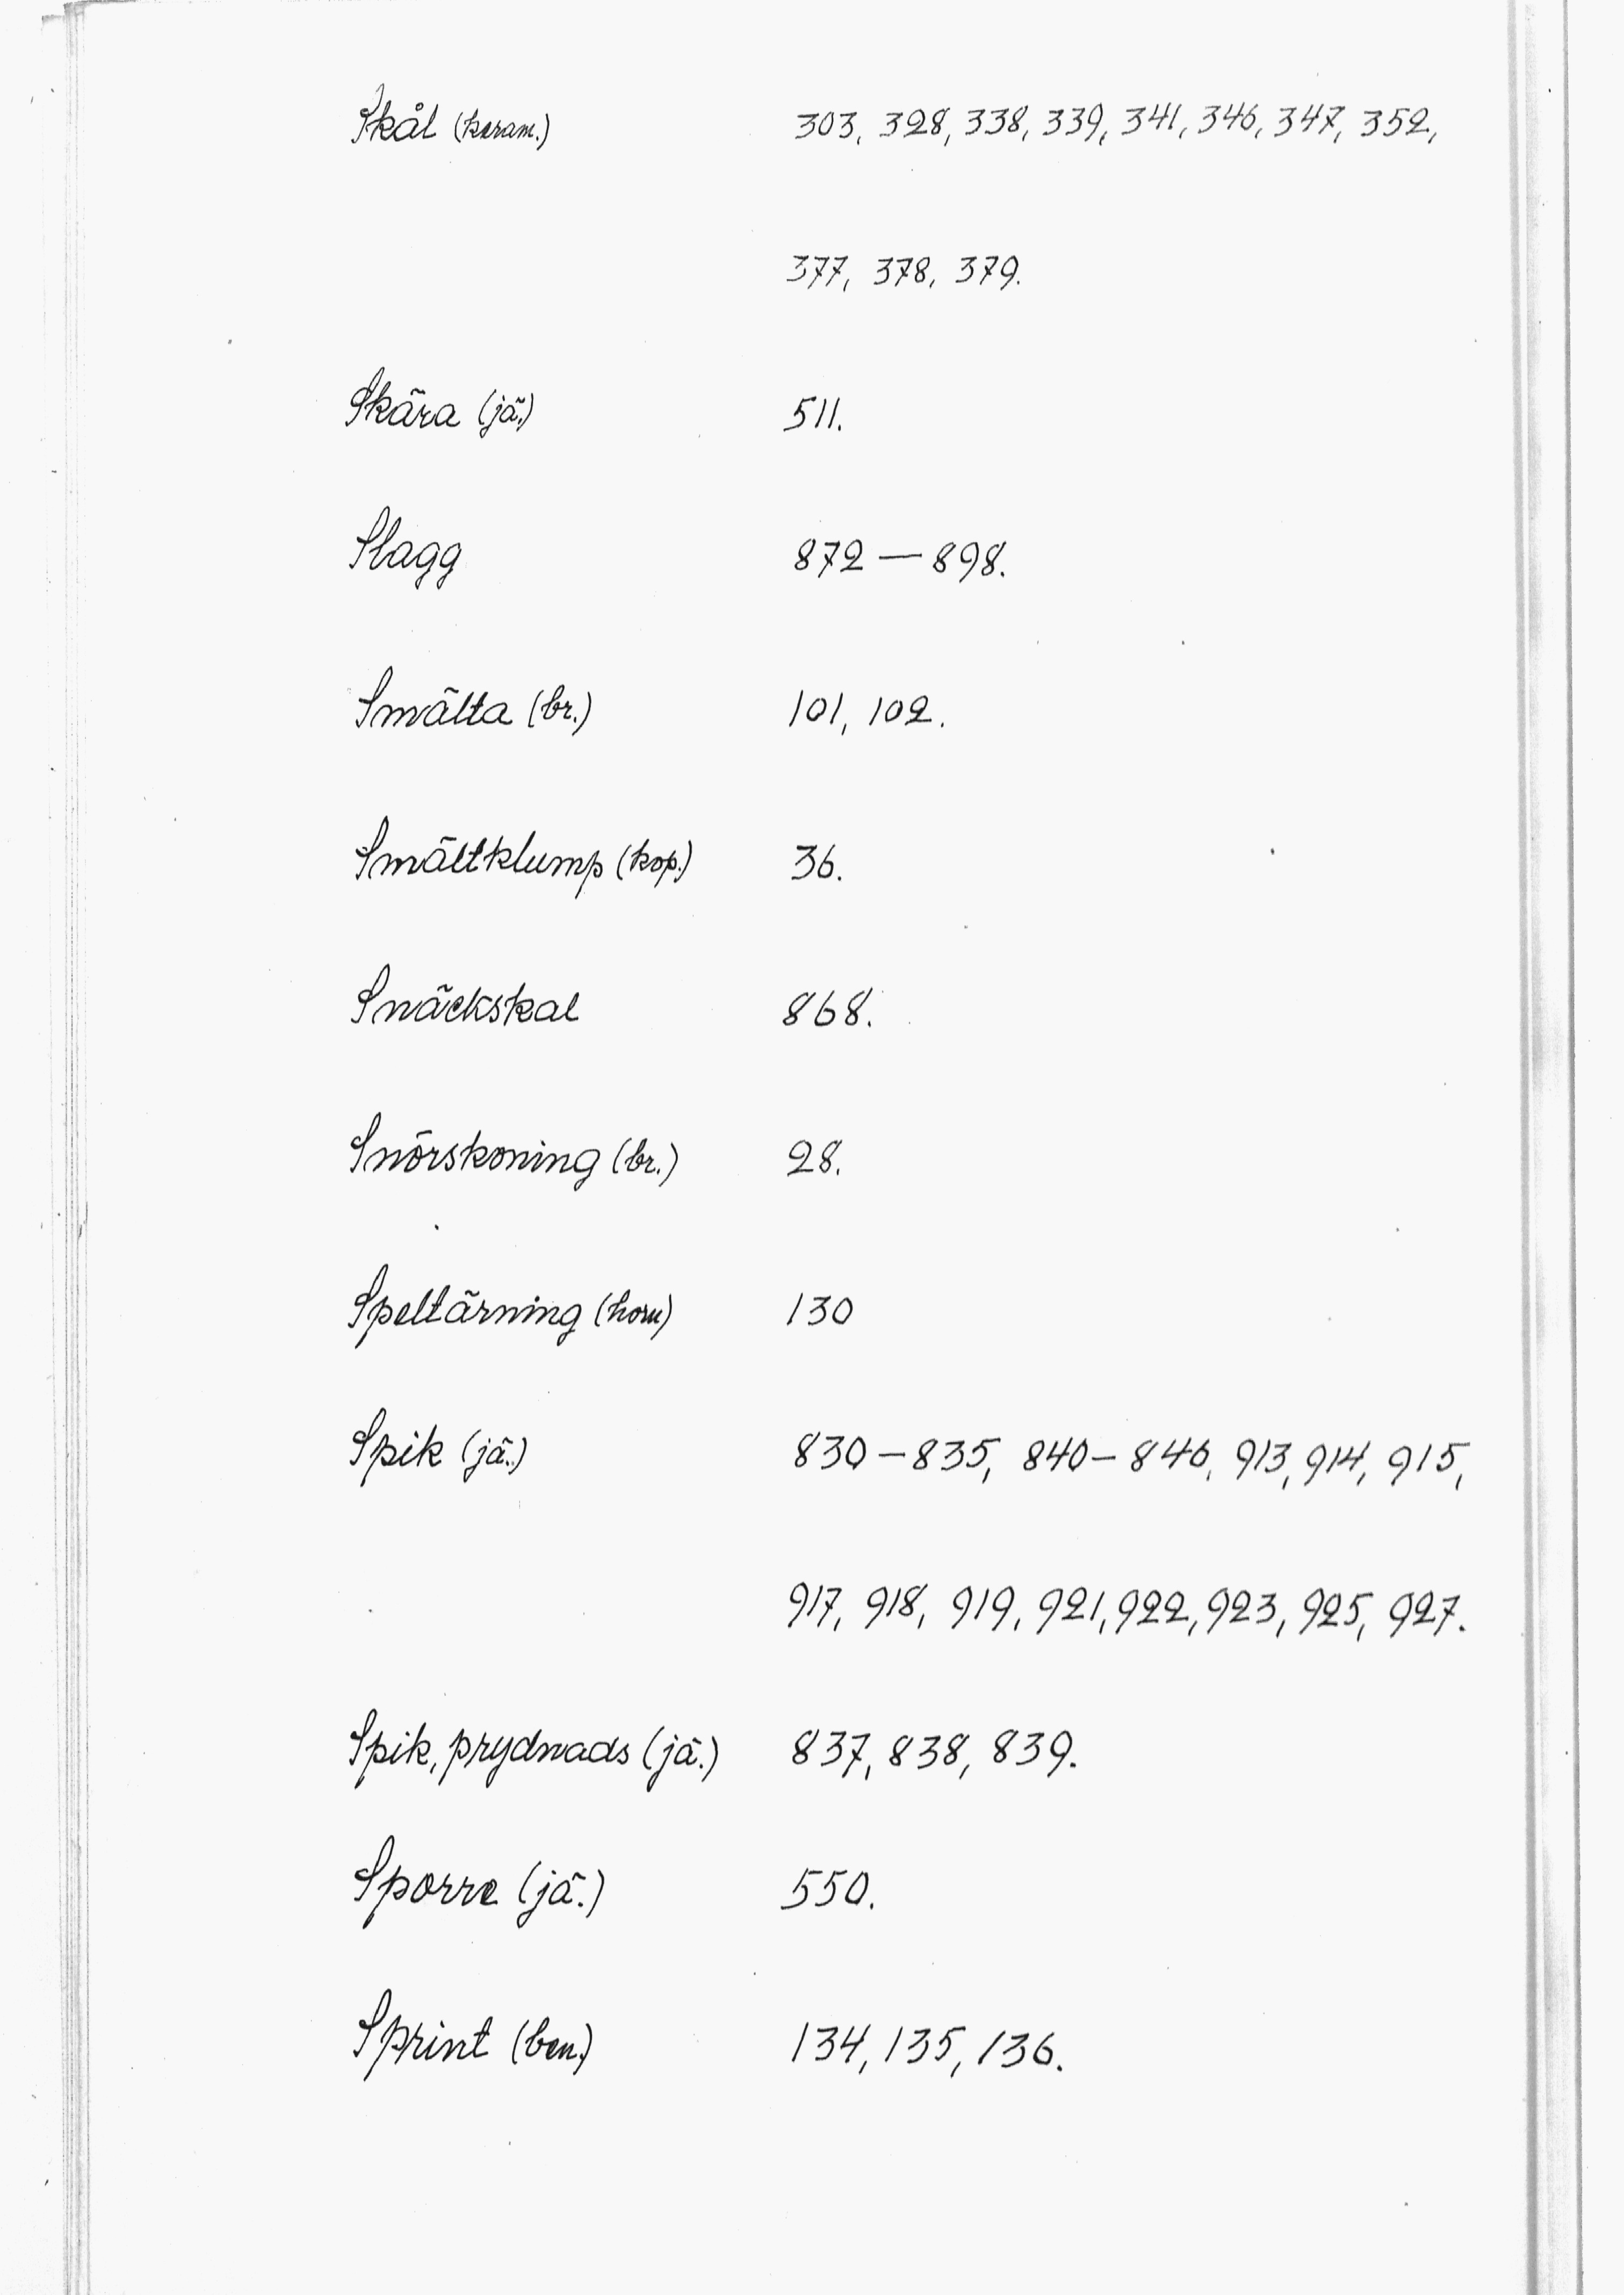 Skål (keram.) 303, 328, 338, 339, 341, 346, 347, 352,
377, 378, 379.
Skära (jä.) 511.
Slagg 872 — 898.
Smälta (br.) 101, 102.
Smältklump (kop.) 36.
Snäckskal 868.
Snörskoning (br.) 28.
Speltärning (horn) 130
Spik (jä.) 830 – 835, 840 – 846, 913, 914, 915,
917, 918, 919, 921, 922, 923, 925, 927.
Spik, prydnads (jä.) 837, 838, 839.
Sporre (jä.) 550.
Sprint (ben.) 134, 135, 136.